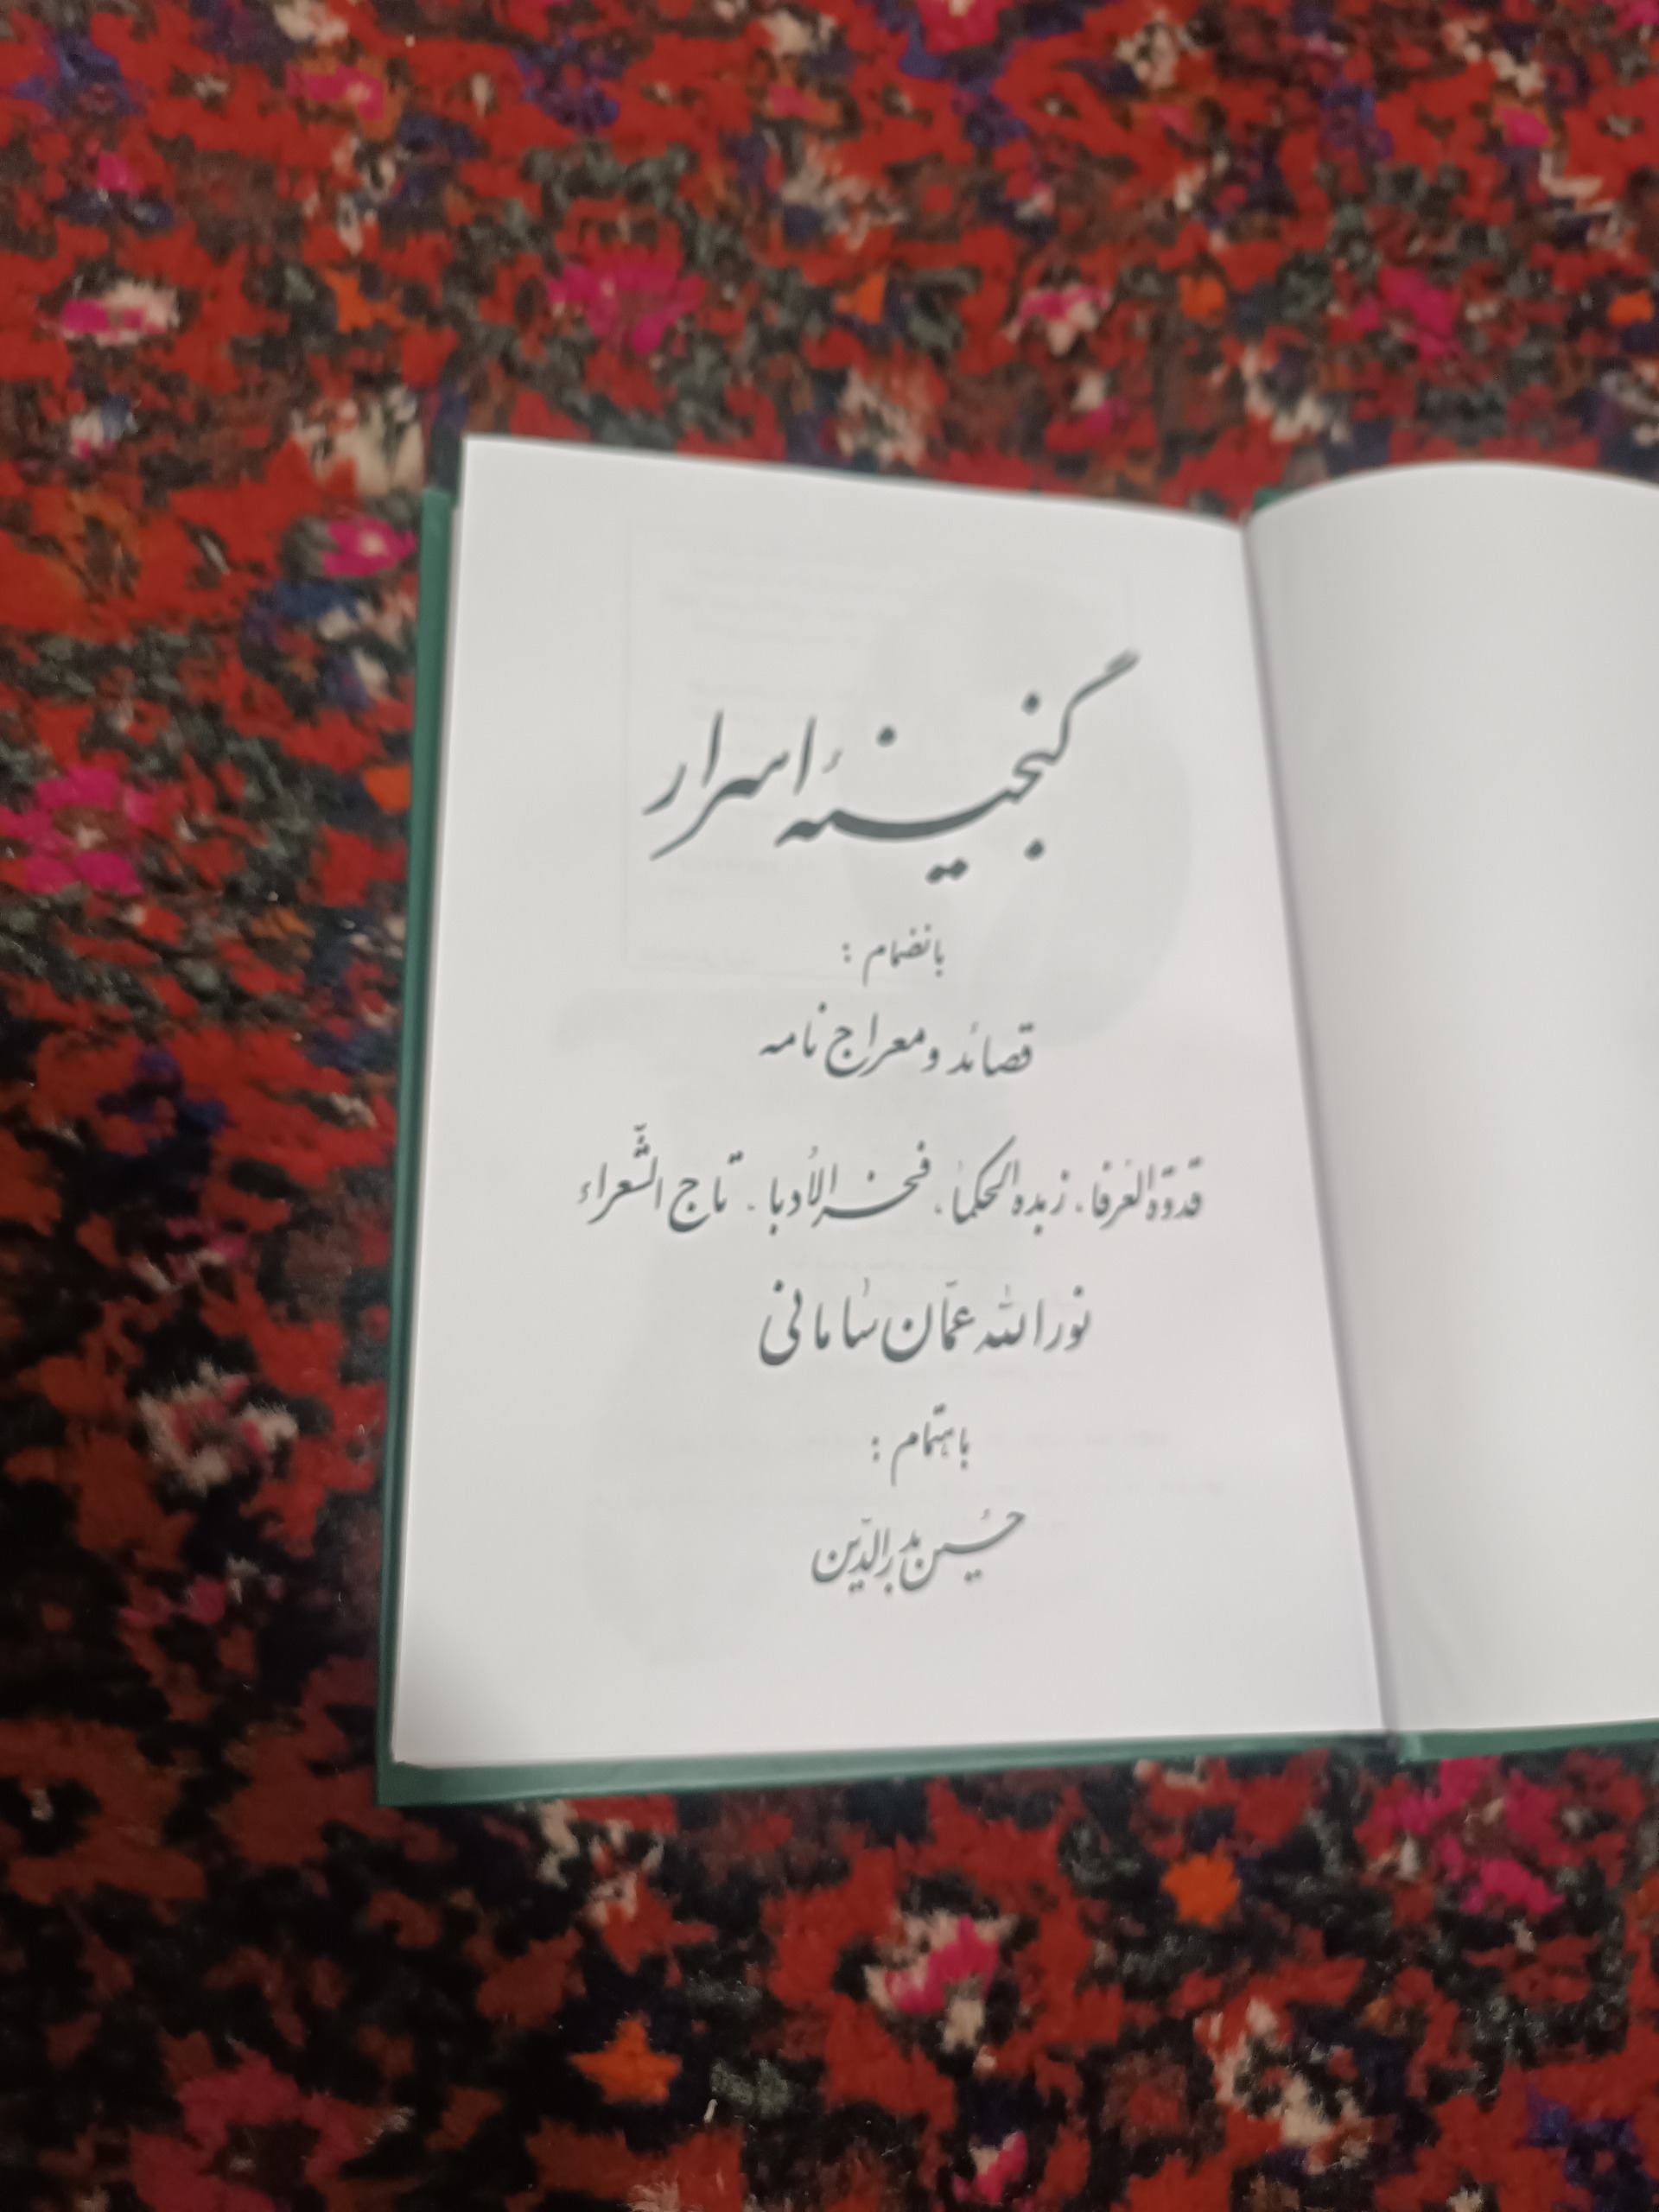 گنجینهٔ اسرار
بانضمام :
قصائد و معراج نامه
قدوة العرفا ، زبده الحکما ، فخر الأدبا . تاج الشّعراء
نورالله عمّان سامانی
باهتمام :
حسین بدرالدّین